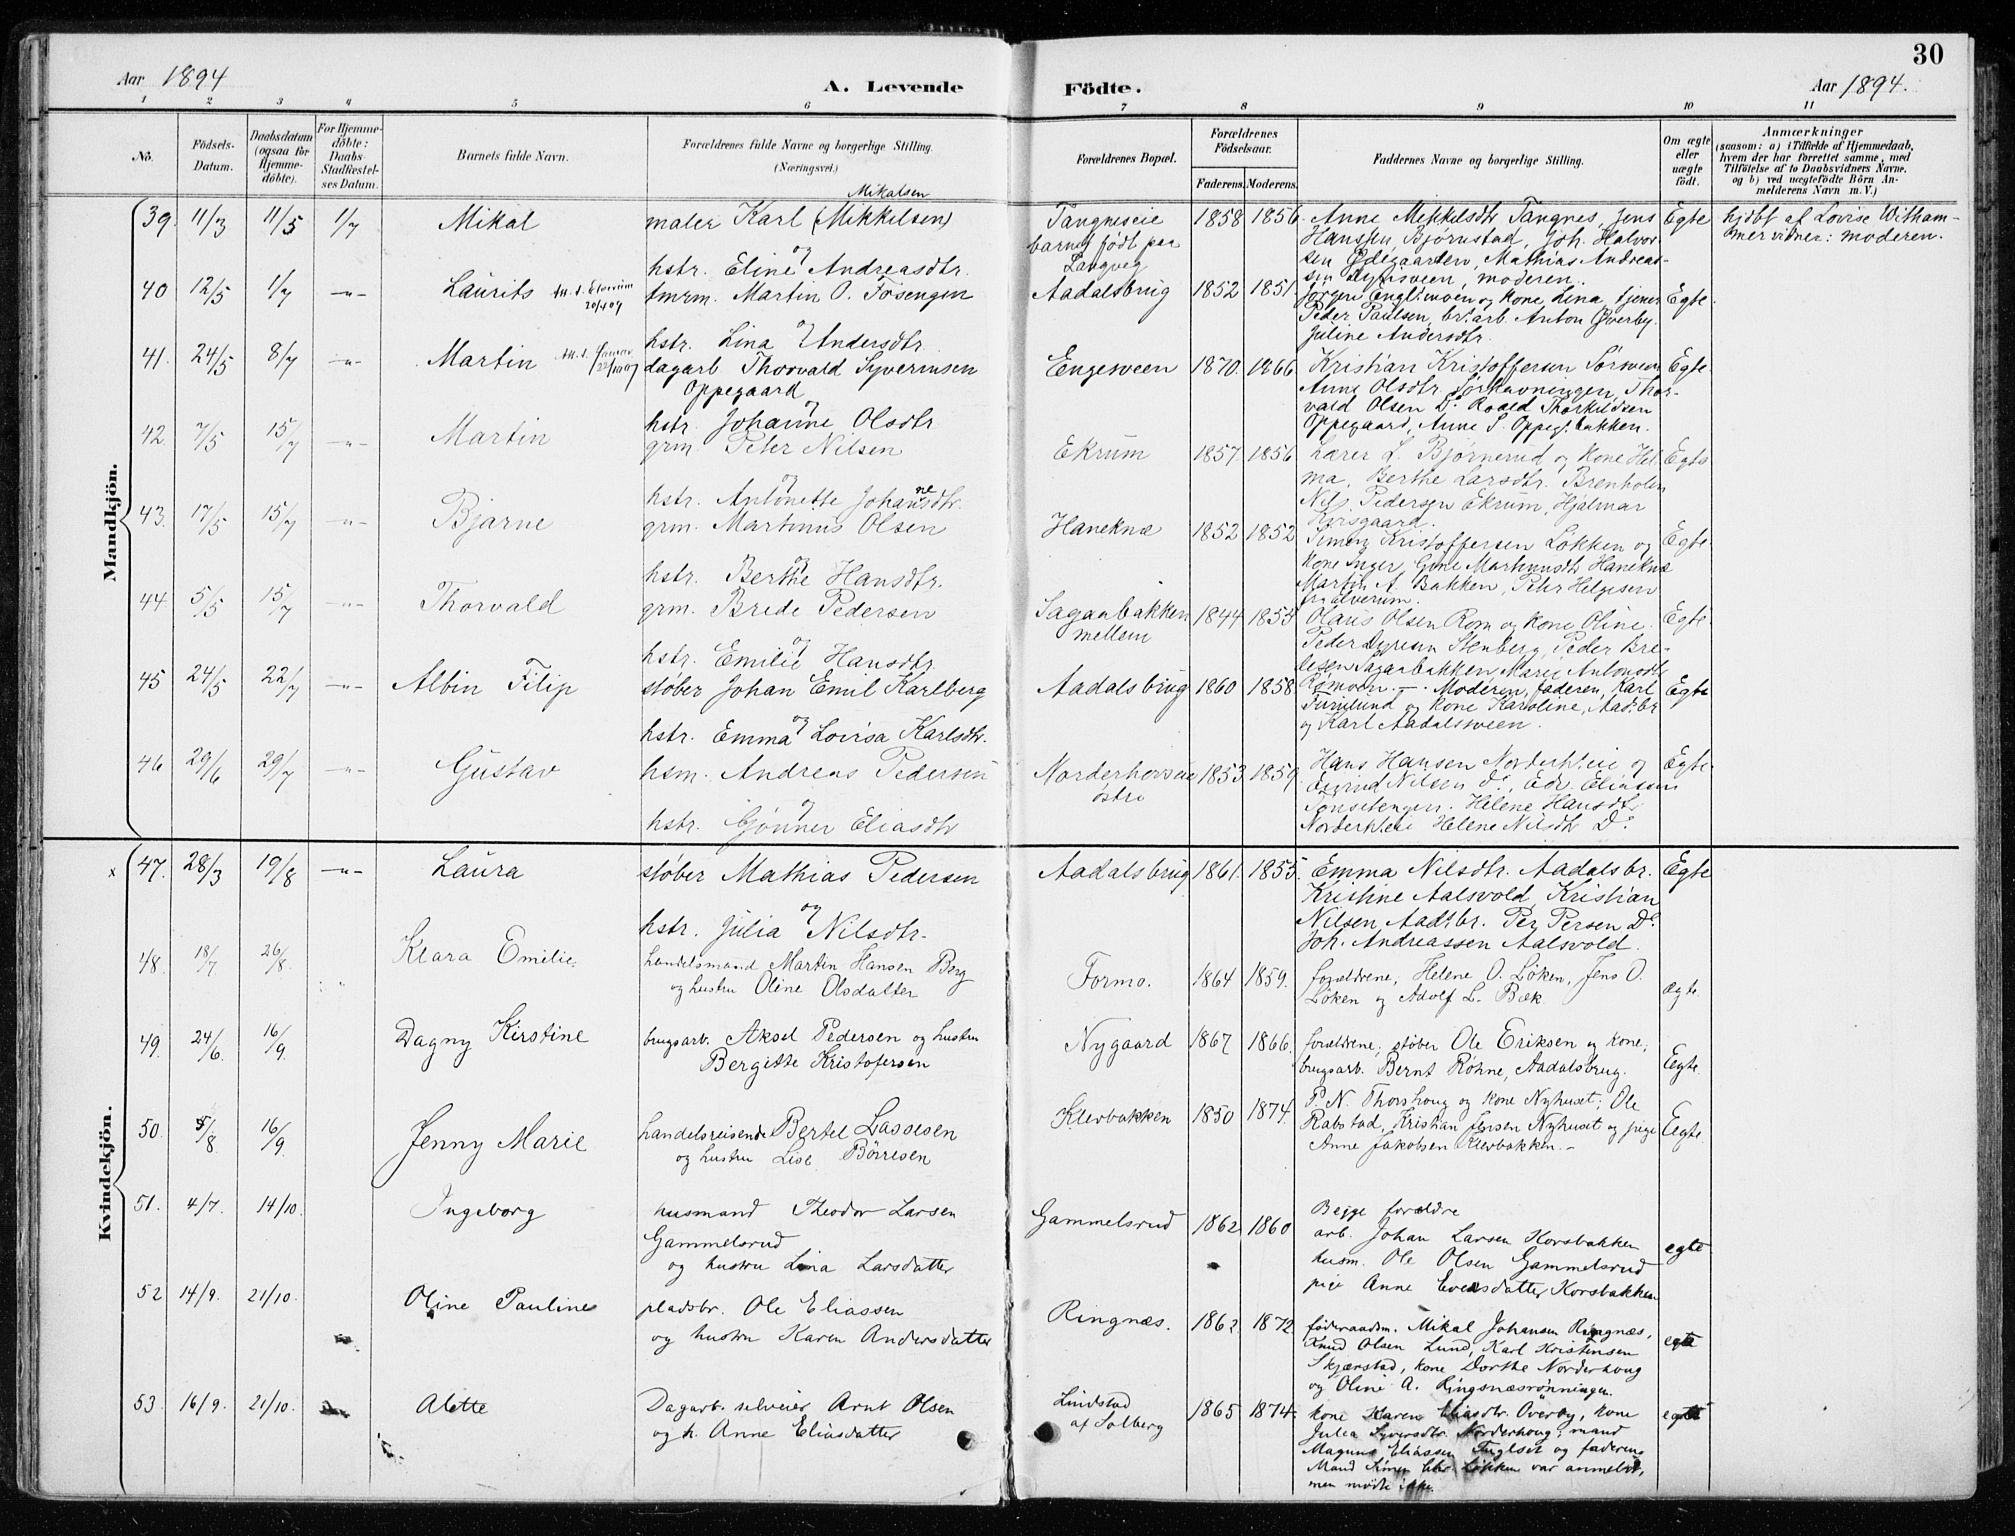 30
Aar 1894
A. Levende
Födte.
Aar 1894.
1 2 3 4 5 6 7 8 9 10 11
No.
Födsels-
Datum.
Daabsdatum
(ogsaa for
Hjemme-
döbte).
For Hjemme-
döbte:
Daabs-
Stadfæstel-
ses Datum.
Barnets fulde Navn.
Forældrenes fulde Navne og borgerlige Stilling.
(Næringsvei.)
Forældrenes Bopæl.
Forældrenes
Födselsaar.
Faderens. Moderens.
Faddernes Navne og borgerlige Stilling.
Om ægte
eller
uægte
födt.
Anmærkninger
(saasom: a) i Tilfælde af Hjemmedaab,
hvem der har forrettet samme, med
Tilföielse af to Daabsvidners Navne,
og b) ved uægtefödte Börn An-
melderens Navn m. V.)
Mandkjön.
39. 11/3 11/5 1/7 Mikal
Mikalsen
maler Karl (Mikkelsen)
og
hstr. Eline Andreasdtr.
Tangneseie
barnet født paa
Langveg
1858 1856
Anne Mikkelsdtr Tangnes, Jens
Hanssen Bjørnstad, Joh. Halvor-
sen Ødegaarden, Mathias Andreas-
moderen.
Egte
hjdbt af Lovise Witham-
mer vidner: moderen.
40 12/5 1/7 -"- Laurits
20/4 09
tmrm. Martin O. Fosengen
og
hstr. Lina Andersdtr.
Aadalsbrug 1852 1851
Jørgen Englimoen og kone Lina, tjener
Peder Paulsen, br.arb. Anton Øverby.
Juline Andersdtr.
Egte.
41. 24/5 8/7 -"- Martin
dagarb Thorvald Syverinsen
Oppegaard
og
hstr. Johanne Olsdtr
Engesveen 1870. 1866
Kristian Kristoffersen Sørsveen
Anne Olsdtr Thor-
vald Olsen Do Roald Thorkildsen
Oppegaard, Anne S. Oppeg.bakken.
Egte.
42. 7/5 15/7 -"- Martin
grm. Peter Nilsen
og
hstr. Antonette Johansdtr
Ekrum 1857. 1856
Lærer L. Bjørnerud og kone Hel-
ma, Berthe Larsdtr. Brenholen
Nils Pedersen Ekrum, Hjalmar
Korsgaard.
Egte
43. 17/5 15/7 -"- Bjarne
grm. Martinus Olsen
og
hstr. Berthe Hansdtr.
Haneknæ 1852 1852
Simen Kristoffersen Løkken og
kone Inger, Gine Martinusdtr Haneknæ
Martin A. Bakken, Peter Helgesen
fra Elverum.
Egte.
44. 5/5 15/7 -"- Thorvald
grm. Brede Pedersen
og
hstr. Emilie Hansdtr.
Sagaabakken
mellem
1844 1855
Olaus Olsen Rom og kone Oline.
Peder Stenberg, Peder Bre-
desen Sagaabakken Marie Antonsdtr
Romsveen.
Egte.
45 24/5 22/7 -"- Albin Filip
støber Johan Emil Karlberg
og
hstr. Emma Lovisa Karlsdtr.
Aadalsbrug 1860 1858.
Moderen, faderen, Karl
Furulund og kone Karoline, Aad.br
og Karl Aadalsveen.
Egte
46 29/6 29/7 -"- Gustav
hsm. Andreas Pedersen
og
hstr. Gønner Eliasdtr
østre
1853 1859.
Hans Hansen og
Nilsen Do, Edv. Eliassen
Helene Hansdtr
Helene Nilsdtr Do
Egte.
Kvindekjön.
x 47. 28/3 19/8 -"- Laura
støber Mathias Pedersen
og
hstr. Julia Nilsdtr.
Aadalsbrug 1861. 1855.
Emma Nilsdtr. Aadalsbr.
Kristine Aalsvold, Kristian
Nilsen Aadsbr. Per Persen Do
Joh. Andreassen Aalsvold.
Egte
48. 18/7 26/8. Klara Emilie.
handelsmand Martin Hansen Berg
og hustru Oline Olsdatter
Formo. 1864 1859.
forældrene, Helene O. Löken, Jens O.
Löken og Adolf L. Bæk
ægte.
49. 24/6. 16/9. Dagny Kirstine
brugsarb. Aksel Pedersen og hustru
Bergitte Kristofersen
Nygaard 1867 1866.
forældrene, støber Ole Eriksen og kone,
brugsarb. Bernt Røhne, Aadalsbrug.
Eegte.
50. 5/8 16/9. Jenny Marie
handelsreisende Bertel Lassesen
og hustru Lise Börresen
Klevbakken 1850 1874.
P. N. Thorshoug og kone Nyhuset; Ole
Rabstad, Kristian Jensen Nyhuset og pige
Anne Jakobsen Klevbakken.-
Eegte.
51. 4/7. 14/10. Ingeborg
husmand Theodor Larsen
Gammelsrud
og hustru Lina Larsdatter
Gammelsrud 1862. 1860
Begge forældre
arb. Johan Larsen Korsbakken
husm. Ole Olsen Gammelsrud
pige Anne Evensdatter Korsbakken
egte
52 14/9. 21/10. Oline Pauline
pladsbr. Ole Eliassen
og hustru Karen Andersdatter
Ringnæs. 1862. 1872.
föderaadsm. Mikal Johansen Ringnæs,
Knud Olsen Lund, Karl Kristensen
Skjærstad, kone Dorthe Norderhoug
og Oline A. Ringsnæsrönningen.
egte
53. 16/9. 21/10. Alette
Dagarb. selveier Arnt Olsen
og h. Anne Eliasdatter
Lindstad
af Solberg
1865 1874.
kone Karen Eliasdtr. Överby, kone
Julia Syversdtr. Norderhoug, mand
Magnus Eliassen Fuglset og faderen
Mand Simen Chr. Løkken var anmeldt,
men mødte ikke.
egte